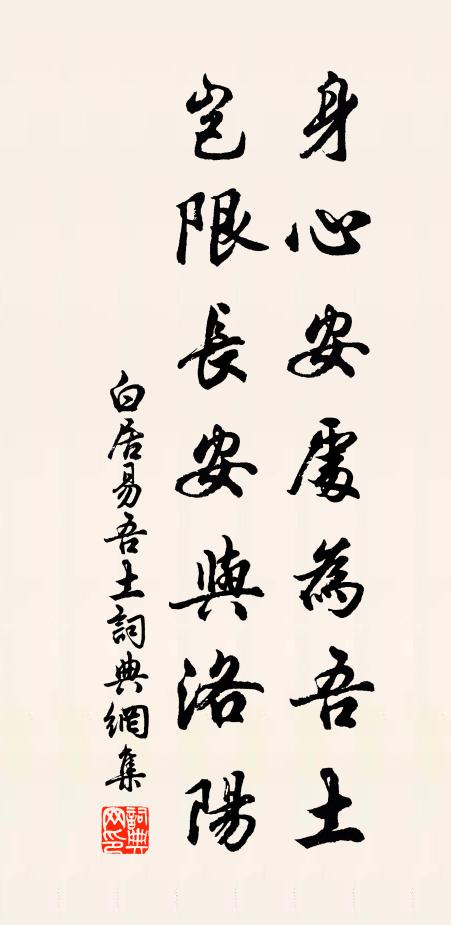 身心安處為吾土
豈限長安與洛陽
白居易吾土詞典網集
詞典網印